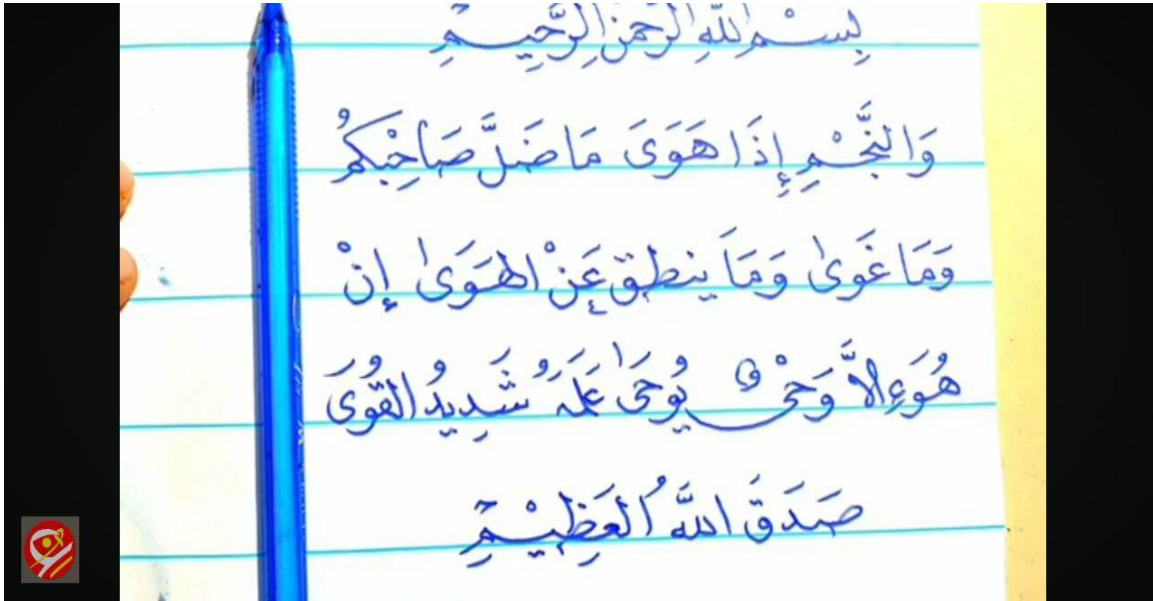 بِسْمِ اللَّهِ الرَّحْمَنِ الرَّحِيمِ
وَالنَّجْمِ إِذَا هَوَىَ مَا ضَلَّ صَاحِبُكُمْ
وَمَا غَوَىٰ وَمَا يَنطِقُ عَنْ الهَوَىٰ إِنْ
هُوَ إِلاَّ وَحْىٌ يُوحَىٰ عَلَّمَهُ شَدِيدُ القُوَىَ
صَدَقَ اللَّهُ العَظِيْمِ